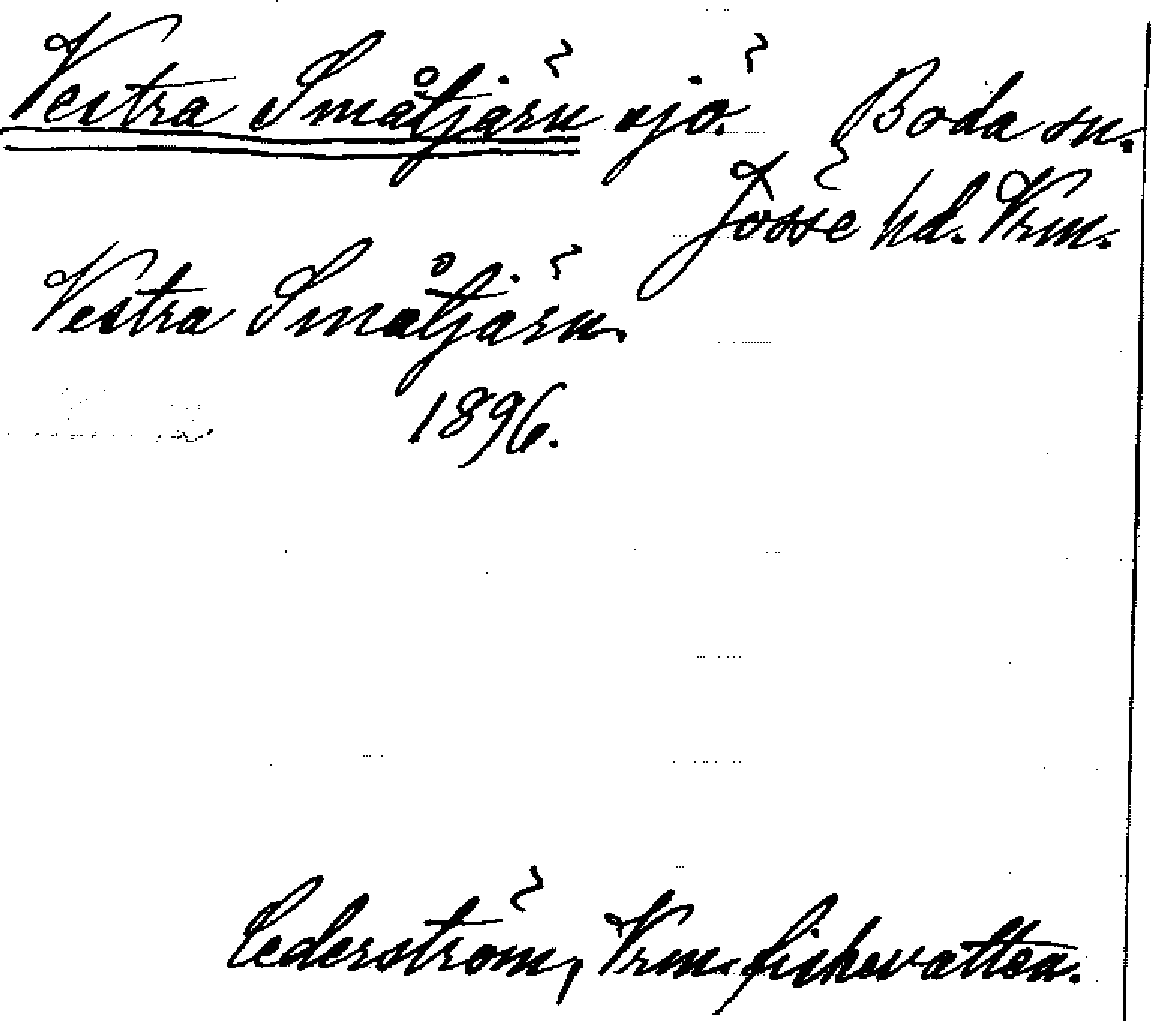 Vestra Småtjärn sjö. Boda sn.
Jösse hd. Vrm.
Vestra Småtjärn.
1896.
Cederström, Vrm. fiskevatten.